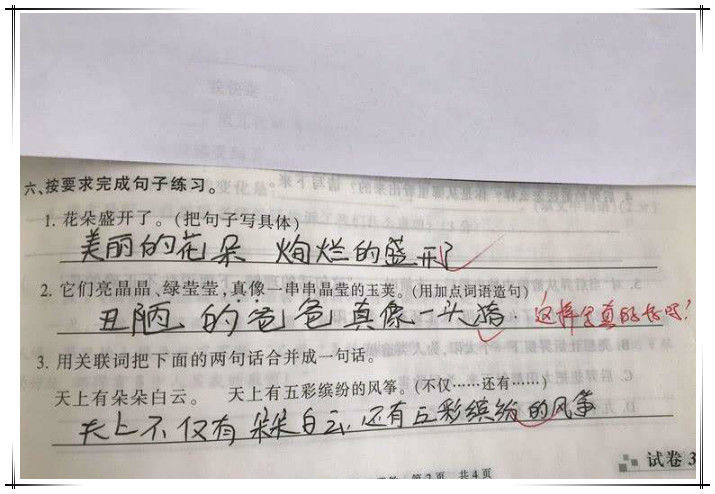 六、按要求完成句子练习。
1. 花朵盛开了。(把句子写具体)
美丽的花朵 炯烂的盛开了
2. 它们亮晶晶,绿莹莹,真像一串串晶莹的玉荚。(用加点词语造句)
丑陋的爸爸真像一头猪. 这样写真的好吗?
3. 用关联词把下面的两句话合并成一句话。
天上有朵朵白云。 天上有五彩缤纷的风筝。(不仅……还有……)
天上不仅有朵朵白云,还有五彩缤纷的风筝
第2页 共4页
试卷3